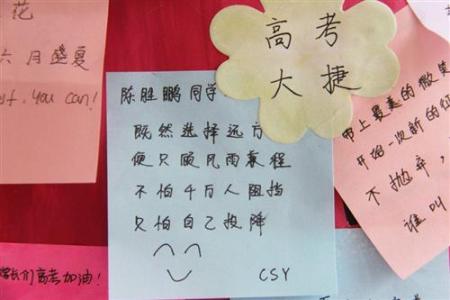 花
六月盛夏
t. you can!
高考
大捷
陈胜鹏同学
既然选择远方
便只顾风雨兼程
不怕千万人阻挡
只怕自己投降
CSY
带上最美的微笑
开始一次新的征
不抛弃,
谁叫
学长们高考加油!